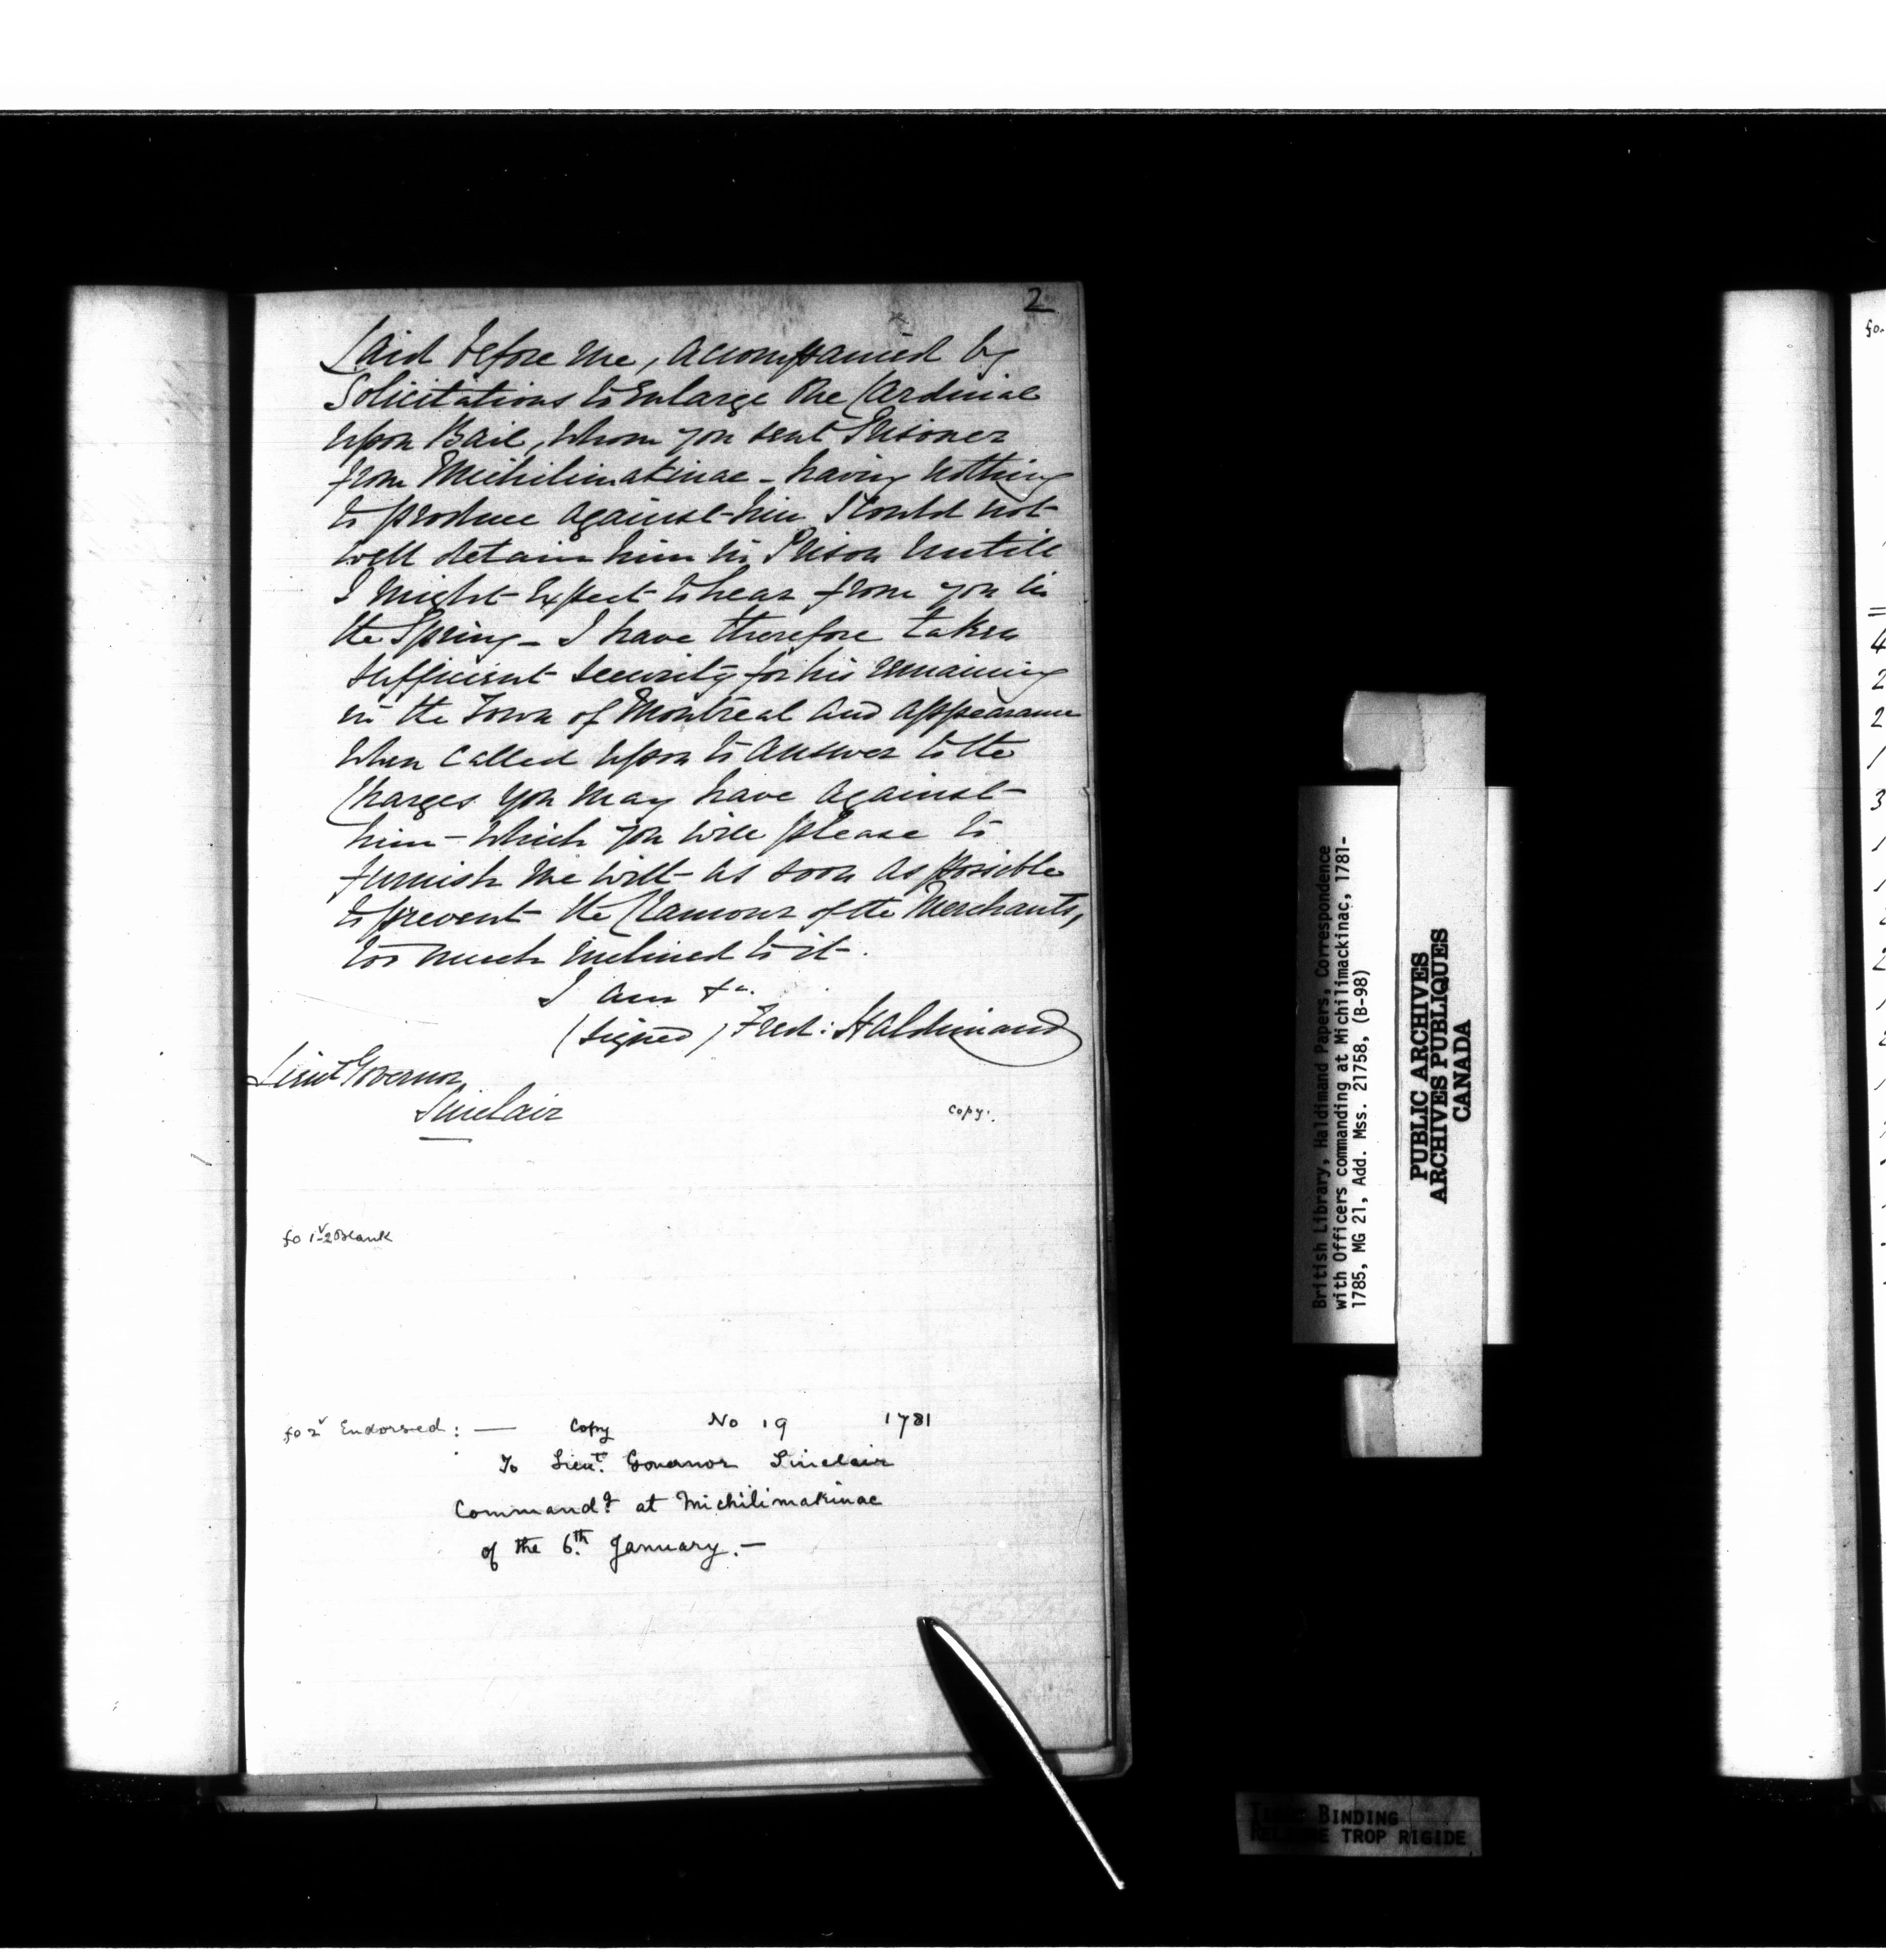 2
Laid before me, accompanied by
Solicitations to Enlarge One Cardinal
upon Bail, whom you sent Prisoner
from Michilimakinac - having nothing
to produce against him I could not
well detain him in Prison untill
I might Expect to hear from you in
the Spring - I have therefore taken
sufficient security for his remaining
in the Town of Montreal and appearance
when called upon to answer to the
Charges you may have against
him - which you will please to
furnish me with as soon as possible
to prevent the Clamour of the Merchants,
too much inclined to it.
I am &a.
(signed) Fred: Haldimand
Lieut Governor
Sinclair
Copy.
fo 1v-2 Blank
fo 2v Endorsed: — Copy No 19 1781
To Lieut. Governor Sinclair
Command.g at Michilimakinac
of the 6.th January. —
British Library, Haldimand Papers, Correspondence
with Officers commanding at Michilimackinac, 1781-
1785, MG 21, Add. Mss. 21758, (B-98)
PUBLIC ARCHIVES
ARCHIVES PUBLIQUES
CANADA
BINDING
TROP RIGIDE
fo.
4
2
2
1
3